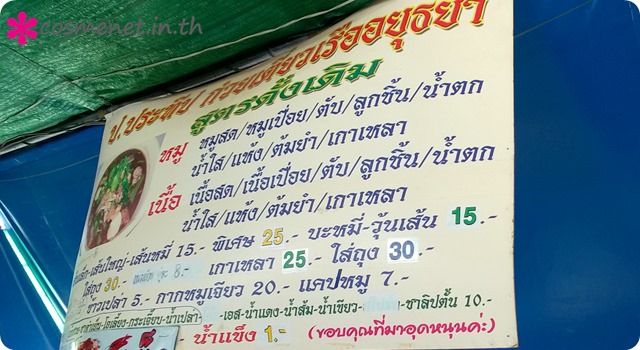 cosmenet.in.th
ป.ประทีป ก๋วยเตี๋ยวเรืออยุธยา
สูตรดั้งเดิม
หมู หมูสด/หมูเปื่อย/ตับ/ลูกชิ้น/น้ำตก
น้ำใส/แห้ง/ต้มยำ/เกาเหลา
เนื้อ เนื้อสด/เนื้อเปื่อย/ตับ/ลูกชิ้น/น้ำตก
น้ำใส/แห้ง/ต้มยำ/เกาเหลา
เส้นใหญ่-เส้นหมี่ 15.- พิเศษ 25.- บะหมี่-วุ้นเส้น 15.-
ใส่ถุง 30.- 8.- เกาเหลา 25.- ใส่ถุง 30.-
ข้าวเปล่า 5.- กากหมูเจียว 20.- แคปหมู 7.-
โอเลี้ยง-กระเจี๊ยบ-น้ำเปล่า -เอส-น้ำแดง-น้ำส้ม-น้ำเขียว- -ชาลิปตั้น 10.-
- น้ำแข็ง 1.- (ขอบคุณที่มาอุดหนุนค่ะ)